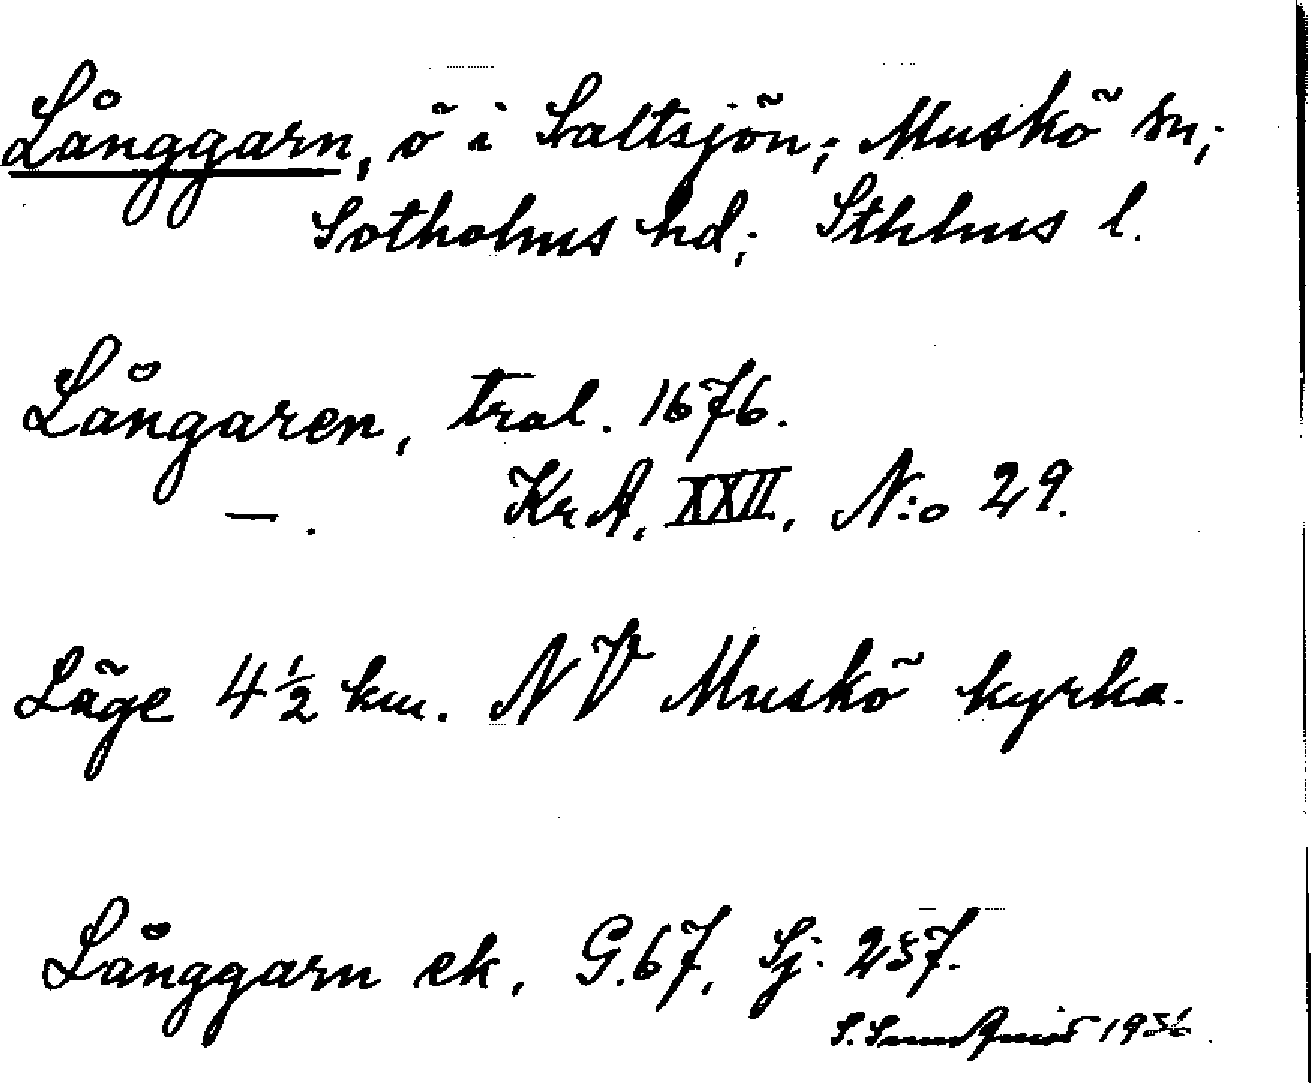 Långgarn, ö i Saltsjön; Muskö sn;
Sotholms hd; Sthlms l.
Långaren, tral. 1676.
—. KrA, XXII, N:o 29.
Läge 4 1/2 km. NV Muskö kyrka.
Långgarn ek. G.67, Sj: 257.
S. 1936.